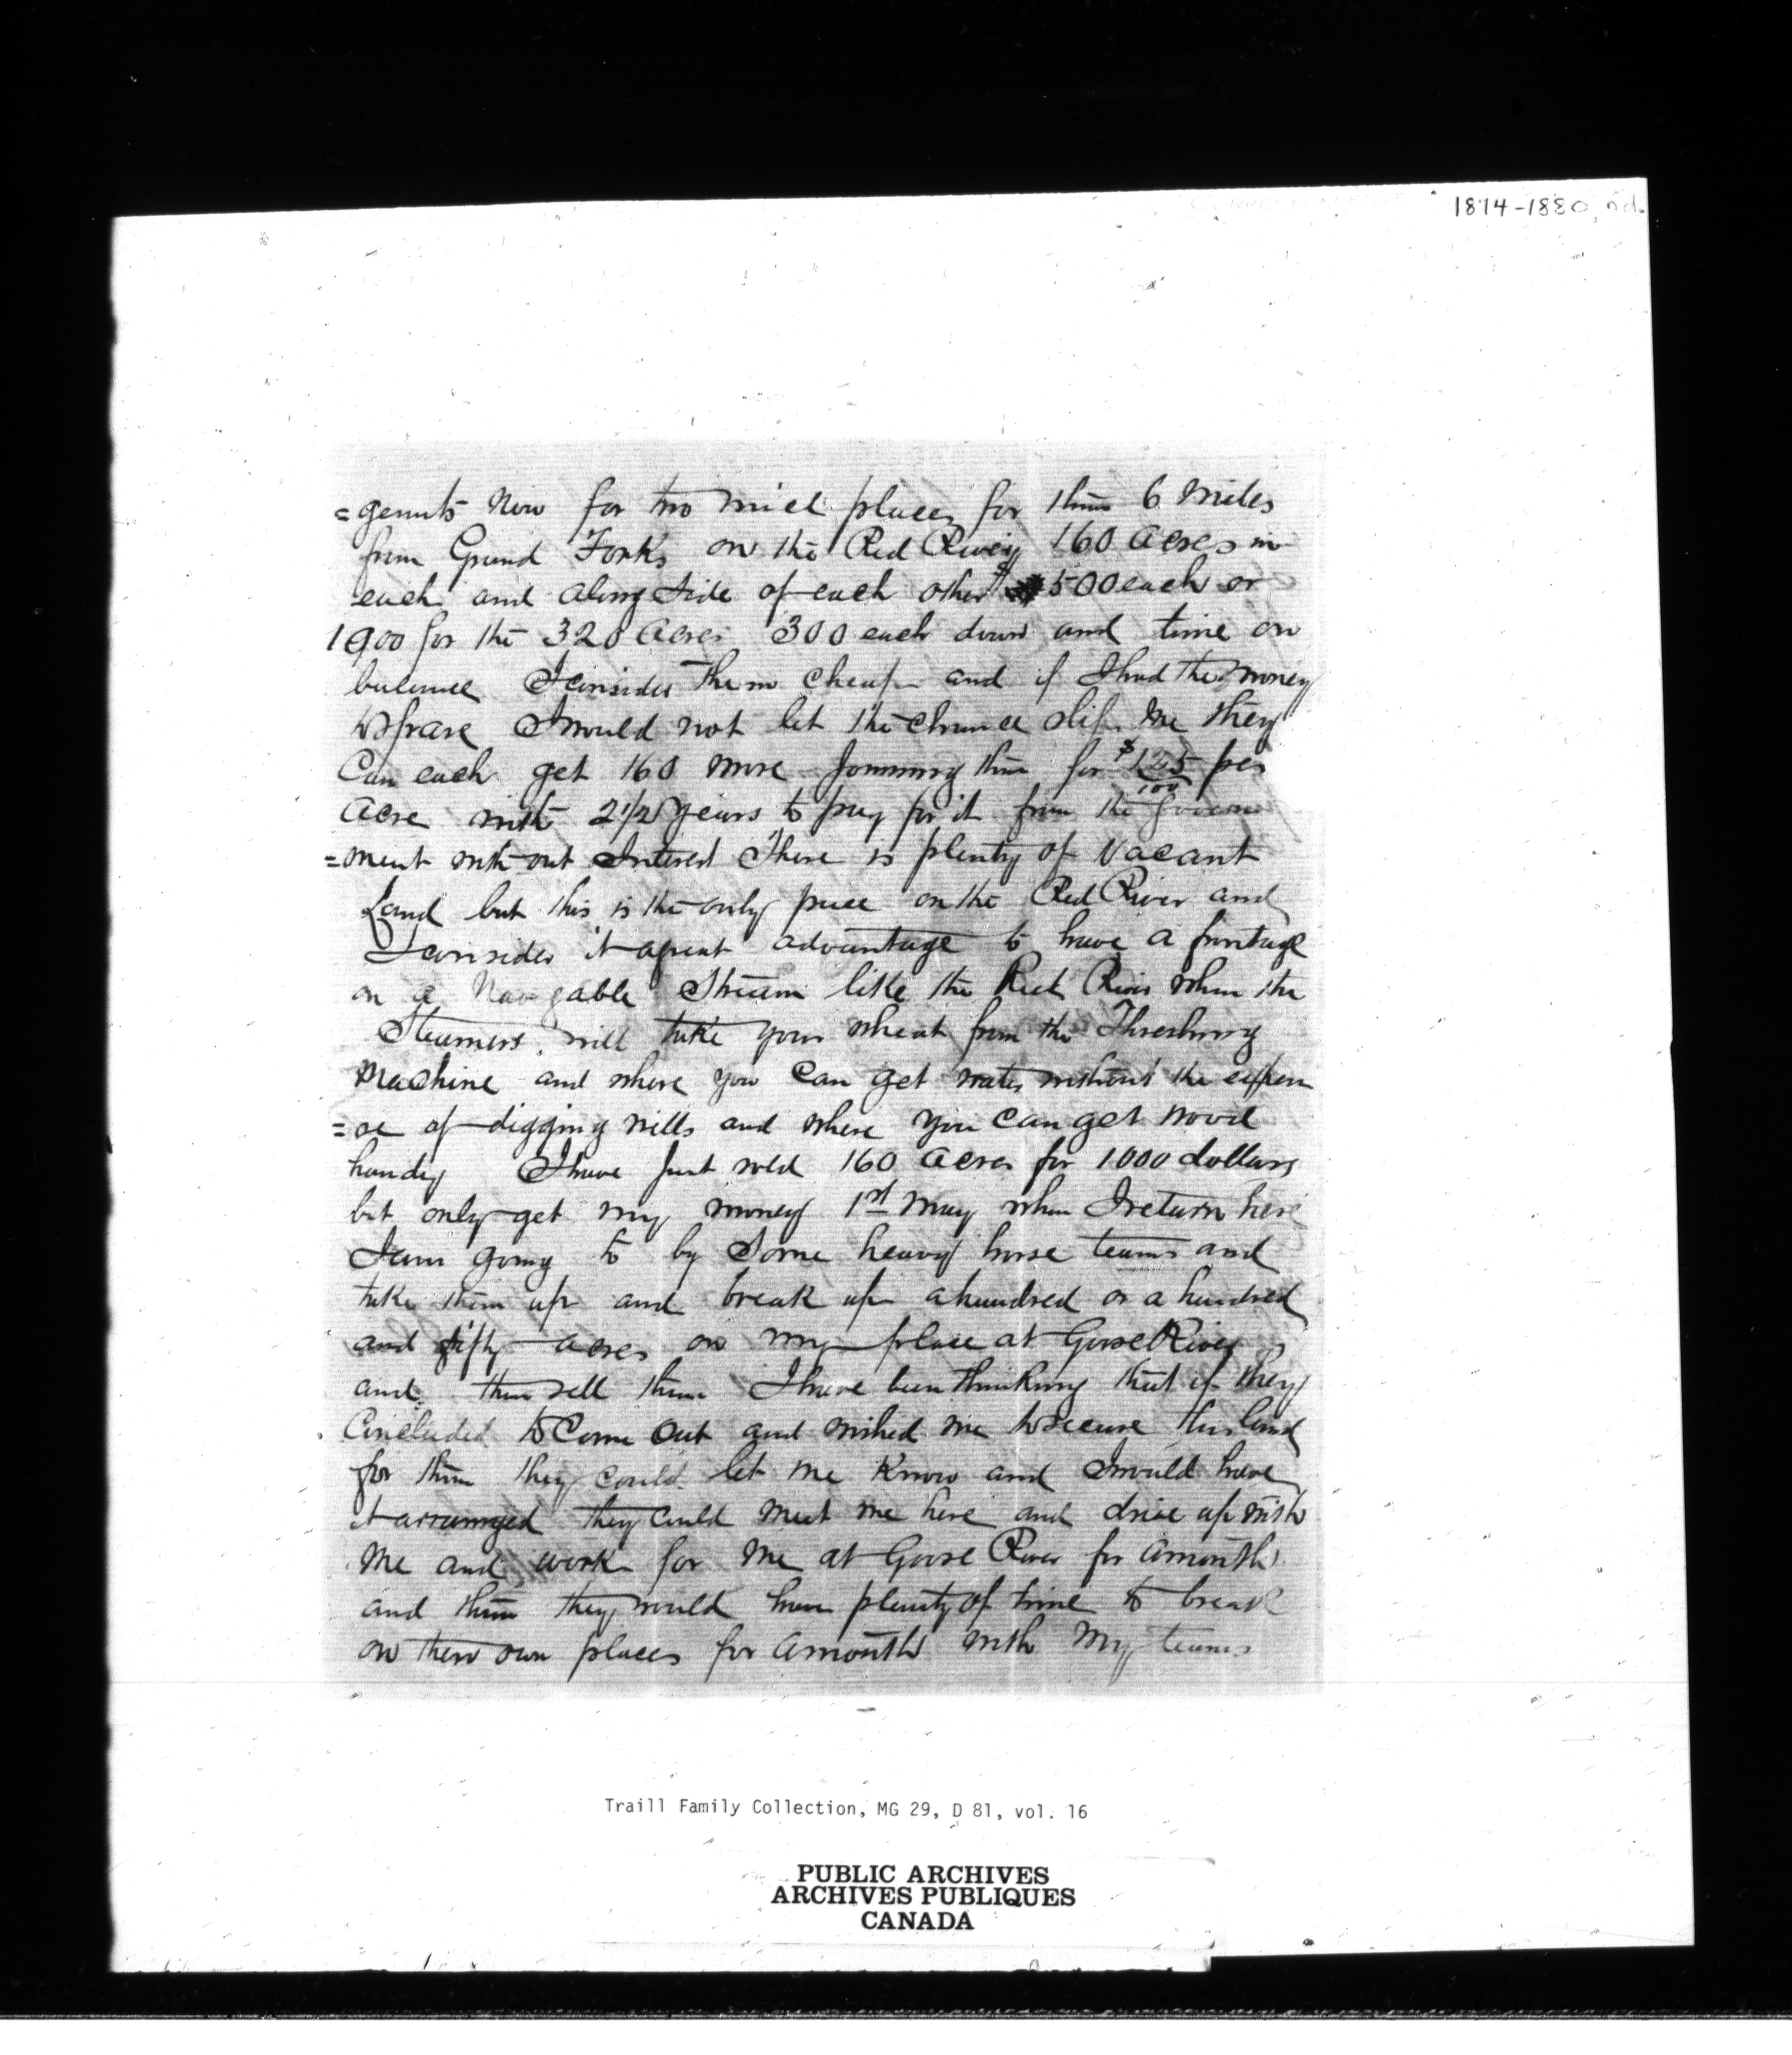 1874-1880, n.d.
=gemnts now for two nice places for them 6 Miles
from Grand Forks on the Red River 160 Acres in
each and along side of each other $500 each or
1000 for the 320 Acres 300 each down and time on
balance I consider them cheap and if I had the money
to spare I would not let the chance slip me they
Can each get 160 more Joinning them for $1 25/100 per
Acre with 2 1/2 years to pay for it from the Govern
=ment with out Interest There is plenty of Vacant
Land but this is the only piece on the Red River and
I consider it a great advantage to have a frontage
on a Navigable Stream like the Red River when the
Steamers will take your wheat from the Threshing
Machine and where you Can get water without the expen
=se of digging wells and where you Can get wood
handy I have Just sold 160 Acres for 1000 dollars
but only get my money 1st May when I return here
I am going to by Some heavy horse teams and
take them up and break up a hundred or a hundred
and fifty acres on my place at Goose River
and then sell them I have been thinking that if they
Concluded to Come Out and wished me to secure this land
for them they could let me Know and I would have
it arranged they Could meet me here and drive up with
Me and work for Me at Goose River for a month
and then they would have plenty of time to break
on there own places for a month with My teams
Traill Family Collection, MG 29, D 81, vol. 16
PUBLIC ARCHIVES
ARCHIVES PUBLIQUES
CANADA